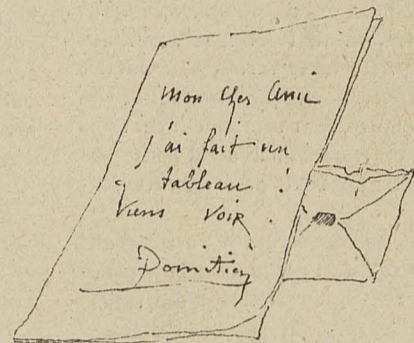 Mon cher Ami
j'ai fait un
tableau :
Viens voir.
Domitien